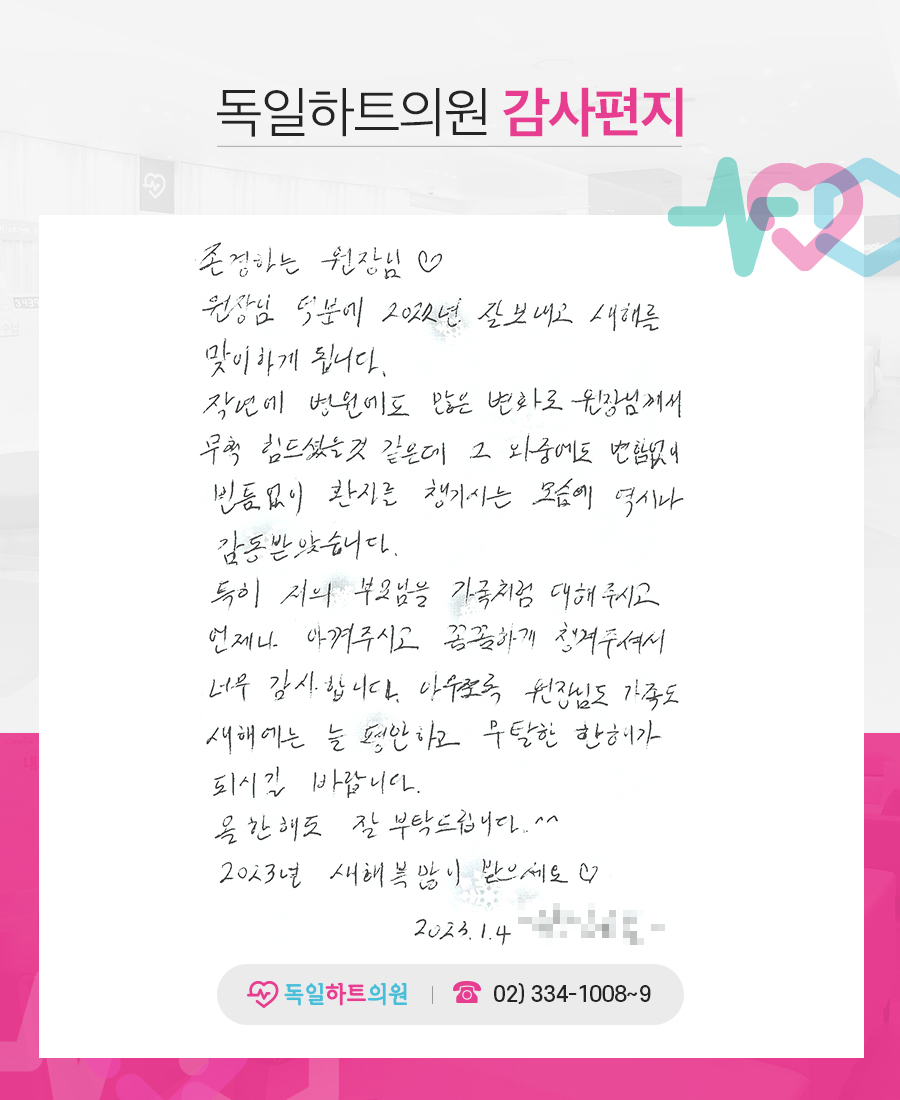 독일하트의원 감사편지
존경하는 원장님 ♡
원장님 덕분에 2022년 잘보내고 새해를
맞이하게 됩니다.
작년에 병원에도 많은 변화로 원장님께서
무척 힘드셨을것 같은데 그 와중에도 변함없이
빈틈없이 환자를 챙기시는 모습에 역시나
감동받았습니다.
특히 저의 부모님을 가족처럼 대해주시고
언제나 아껴주시고 꼼꼼하게 챙겨주셔서
너무 감사합니다. 아무쪼록 원장님도 가족도
새해에는 늘 평안하고 무탈한 한해가
되시길 바랍니다.
올한해도 잘 부탁드립니다..^^
2023년 새해복많이 받으세요♡
2023.1.4
독일하트의원 02) 334-1008~9